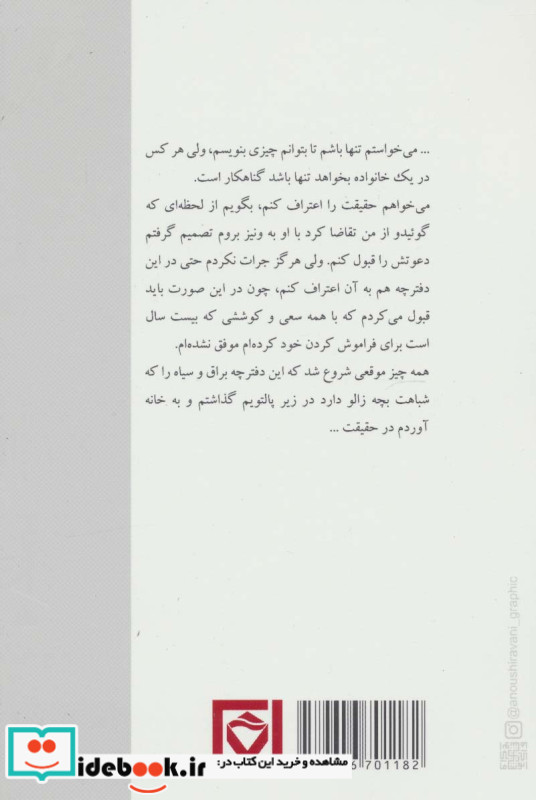 ... می‌خواستم تنها باشم تا بتوانم چیزی بنویسم، ولی هر کس
در یک خانواده بخواهد تنها باشد گناهکار است.
می‌خواهم حقیقت را اعتراف کنم، بگویم از لحظه‌ای که
گوئیدو از من تقاضا کرد با او به ونیز بروم تصمیم گرفتم
دعوتش را قبول کنم. ولی هرگز جرات نکردم حتی در این
دفترچه هم به آن اعتراف کنم، چون در این صورت باید
قبول می‌کردم که با همه سعی و کوششی که بیست سال
است برای فراموش کردن خود کرده‌ام موفق نشده‌ام.
همه چیز موقعی شروع شد که این دفترچه براق و سیاه را که
شباهت بچه زالو دارد در زیر پالتویم گذاشتم و به خانه
آوردم در حقیقت ...
@anoushiravani_graphic
701182
مشاهده و خرید این کتاب در:
idebook.ir